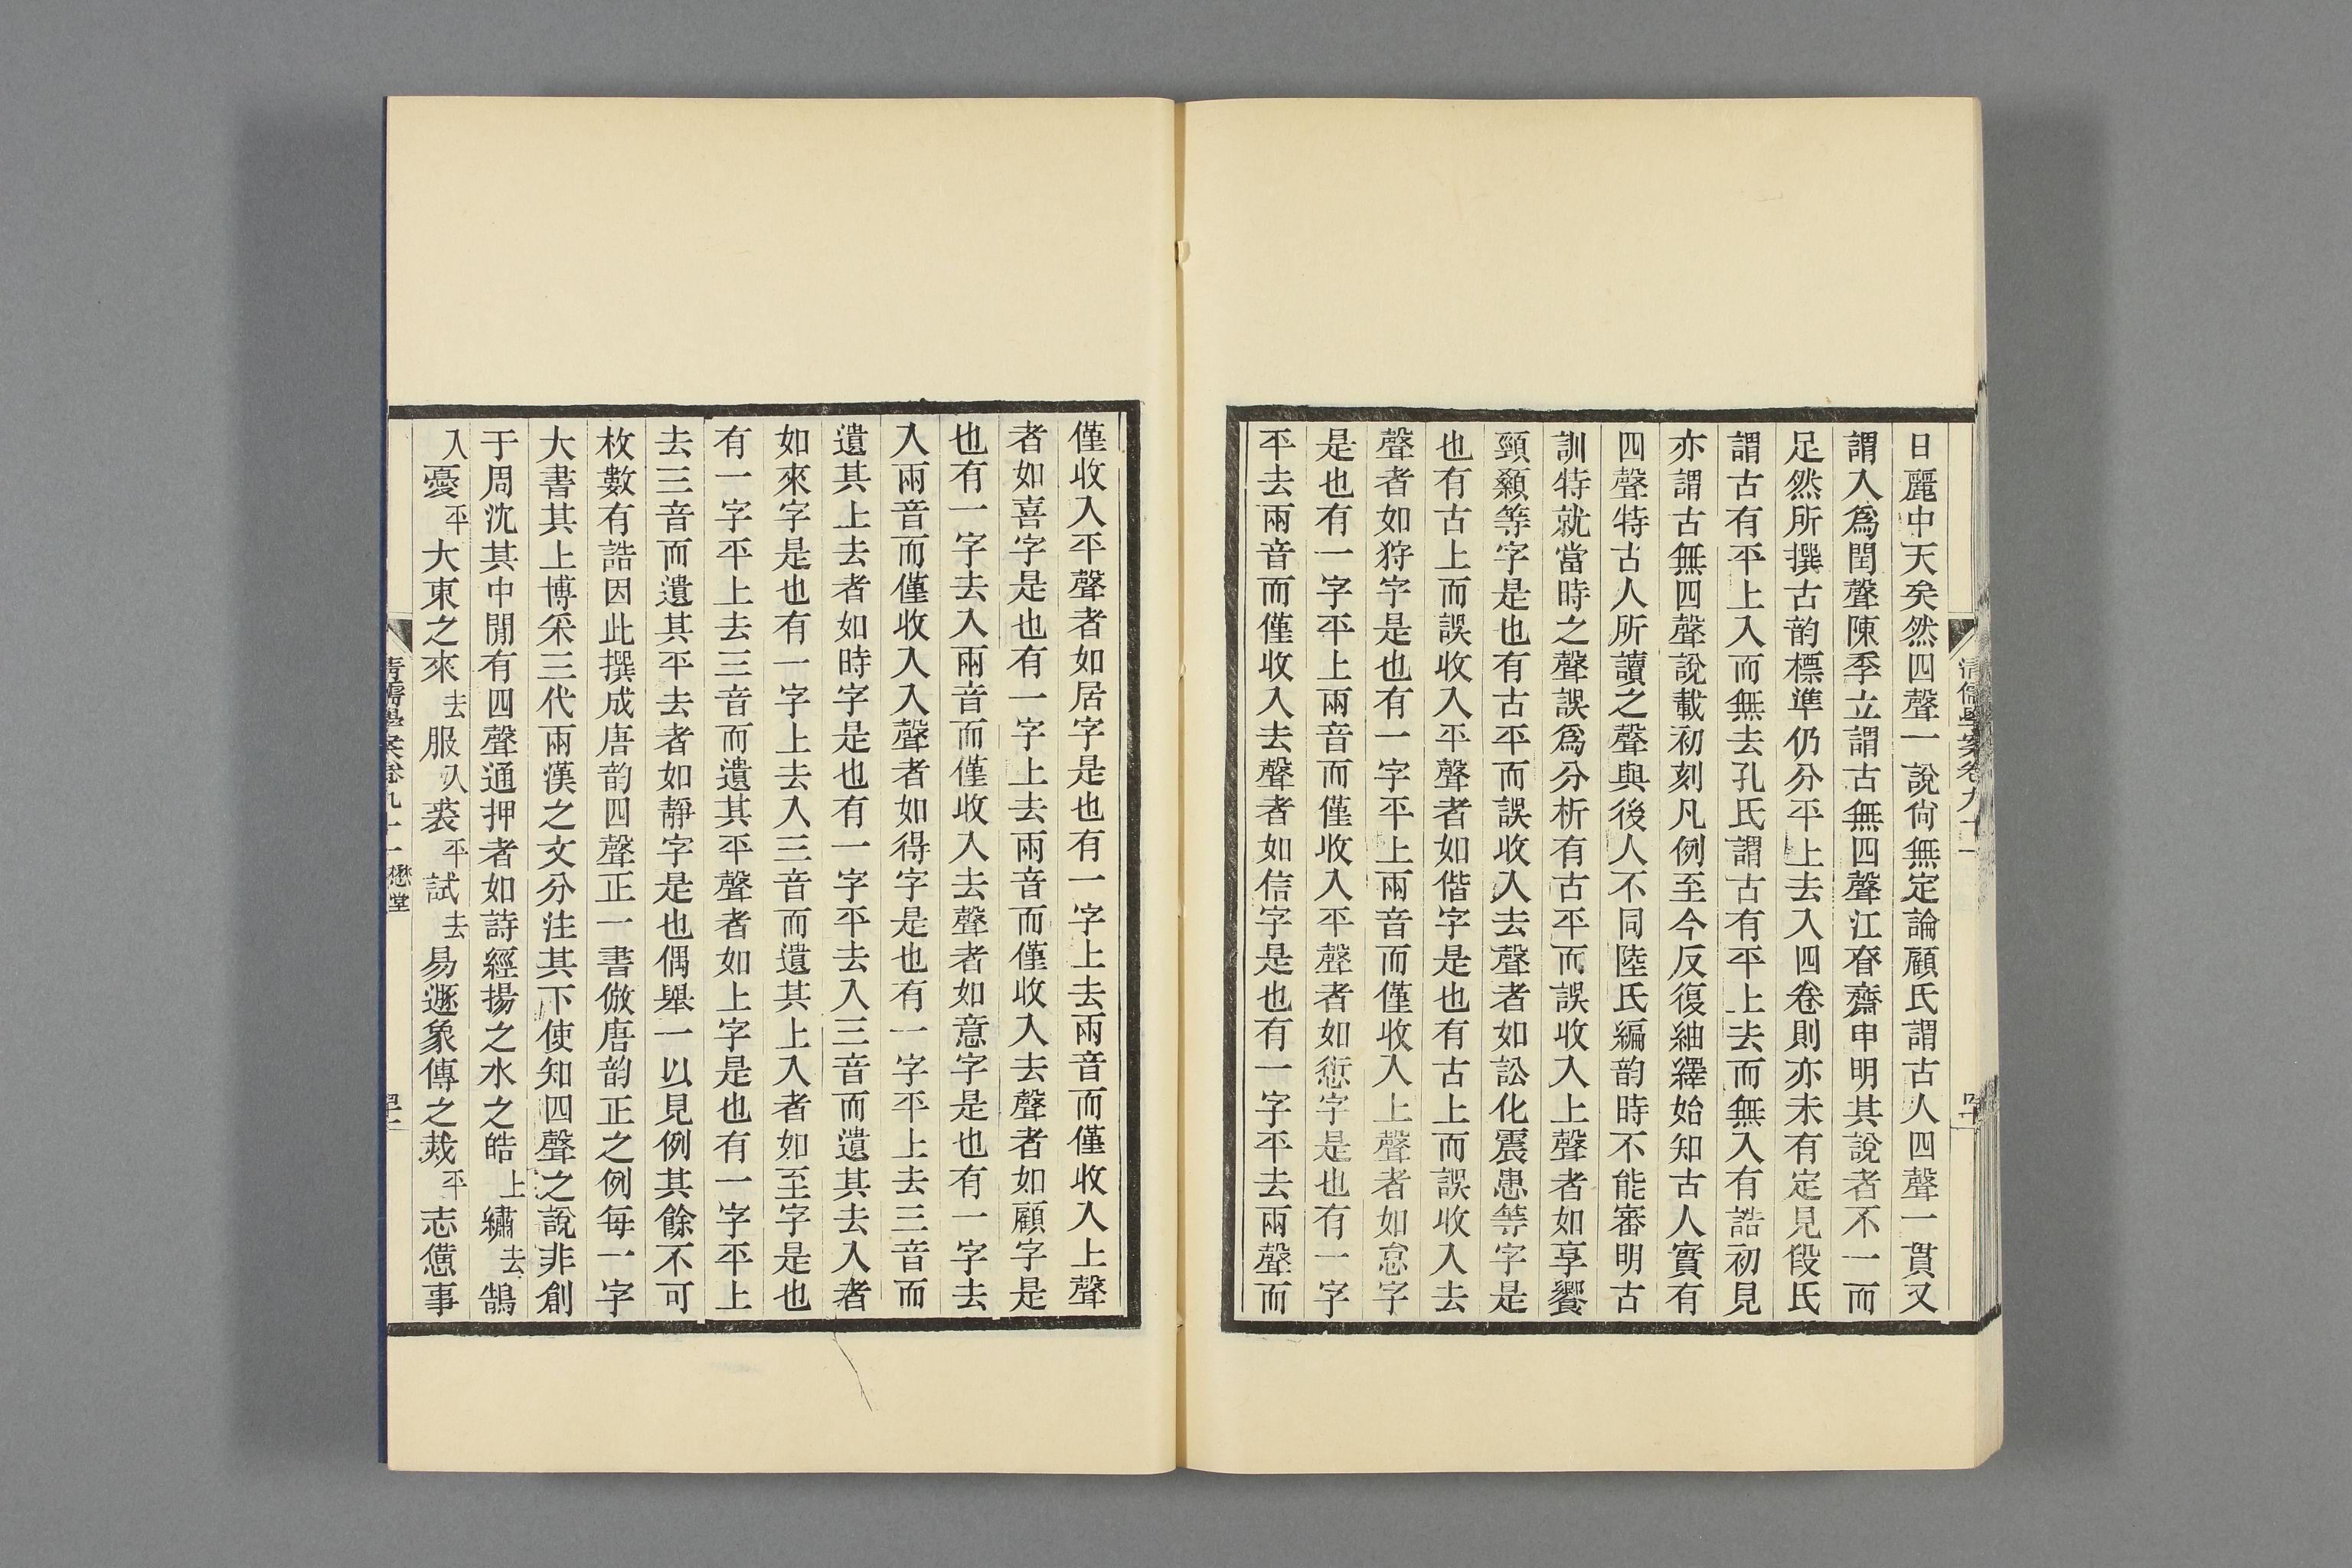 日麗中天矣然四聲一說尙無定論顧氏謂古人四聲一貫又
謂入爲閏聲陳季立謂古無四聲江眘齋申明其說者不一而
足然所撰古韵標準仍分平上去入四卷則亦未有定見段氏
謂古有平上入而無去孔氏謂古有平上去而無入有誥初見
亦謂古無四聲說載初刻凡例至今反復紬繹始知古人實有
四聲特古人所讀之聲與後人不同陸氏編韵時不能審明古
訓特就當時之聲誤爲分析有古平而誤收入上聲者如享饗
頸顙等字是也有古平而誤收入去聲者如訟化震患等字是
也有古上而誤收入平聲者如偕字是也有古上而誤收入去
聲者如狩字是也有一字平上兩音而僅收入上聲者如怠字
是也有一字平上兩音而僅收入平聲者如愆字是也有一字
平去兩音而僅收入去聲者如信字是也有一字平去兩聲而
清儒學案卷九十二
僅收入平聲者如居字是也有一字上去兩音而僅收入上聲
者如喜字是也有一字上去兩音而僅收入去聲者如顧字是
也有一字去入兩音而僅收入去聲者如意字是也有一字去
入兩音而僅收入入聲者如得字是也有一字平上去三音而
遺其上去者如時字是也有一字平去入三音而遺其去入者
如來字是也有一字上去入三音而遺其上入者如至字是也
有一字平上去三音而遺其平聲者如上字是也有一字平上
去三音而遺其平去者如靜字是也偶舉一以見例其餘不可
枚數有誥因此撰成唐韵四聲正一書倣唐韵正之例每一字
大書其上博采三代兩漢之文分注其下使知四聲之說非創
于周沈其中閒有四聲通押者如詩經揚之水之皓上繡去鵠
入憂平大東之來去服入裘平試去易遯象傳之烖平志憊事
清儒學案卷九十二 懋堂